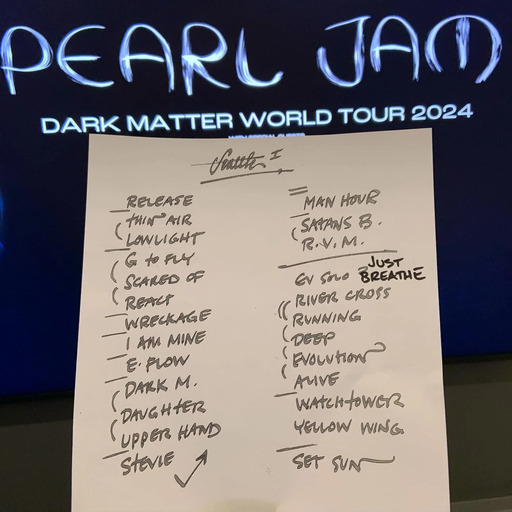 PEARL JAM
DARK MATTER WORLD TOUR 2024
WITH SPECIAL GUESTS
Seattle I
RELEASE
THIN AIR
LOWLIGHT
G to FLY
SCARED OF
REACT
WRECKAGE
I AM MINE
E. FLOW
DARK M.
DAUGHTER
UPPER HAND
STEVIE
MAN HOUR
SATANS B.
R.V.M.
EV SOLO JUST BREATHE
RIVER CROSS
RUNNING
DEEP
EVOLUTION
ALIVE
WATCHTOWER
YELLOW WING
SET SUN